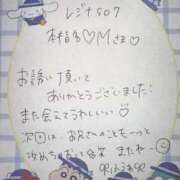 レジナ507
本指名♡Mさま♡
お誘い頂いて
ありがとうございました!
また会えてうれしいい♡
次回は、お兄さんのこともーっと
攻めちゃおっと
またねー